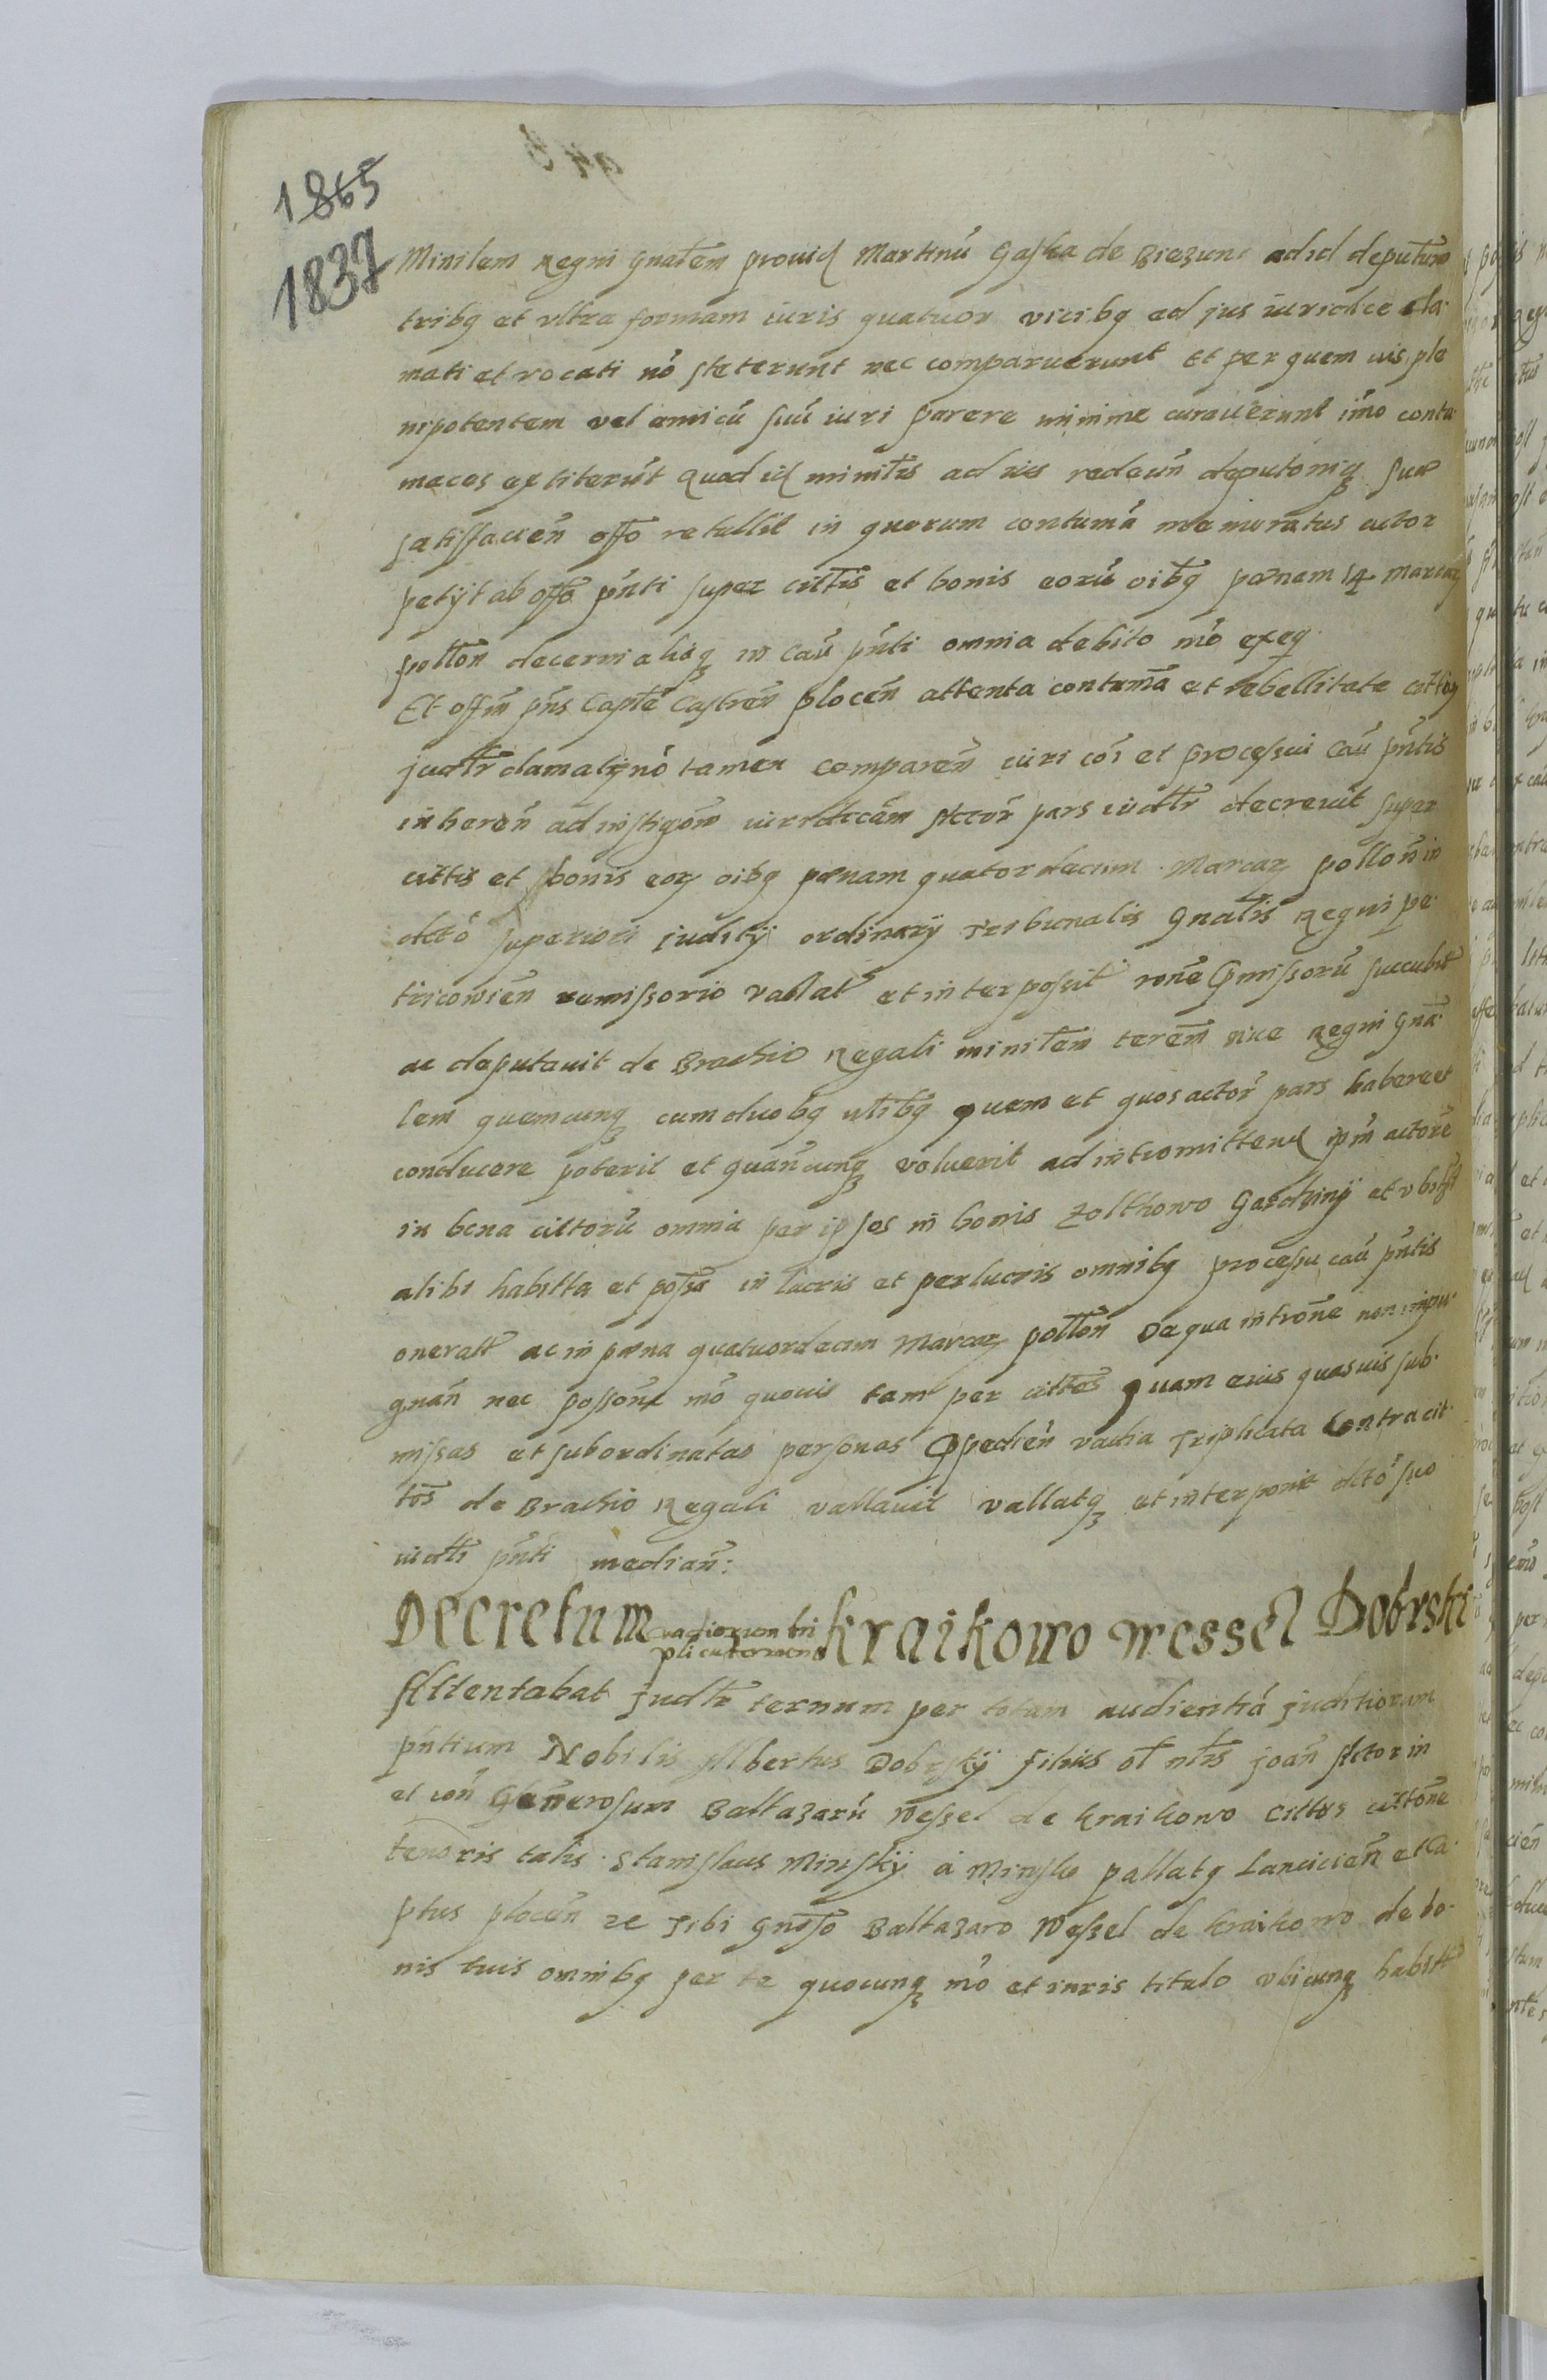 1865
1837
Minilem Regni Gnałem prouid Martinū Gaska de Biezunc ad id deputum
tribq et vltra formam iuris quatuor vicibq ad jus iuridice cla
mati et vocati nō steterunt nec comparuerunt Et per quem uis ple
nipotentem vel amicū suū iuri parere minime curauerunt imo contu
maces extiterūt Quod id ministrs ad nos redeun̄ deputōniq sua
satisfacien̄ offo retullit in quorum contumā memoratus actor
petijt ab offo pn̄ti super cittis et bonis eorū oibq pœnam 14 marcarz
pollon̄ decerni aliaq in Caū pn̄ti omnia debito mō exeq.
Et offm pn̄s Capte Castren̄ plocen̄ attenta contumā et rebellitate cittorz
judlr clamatij nō tamen comparen̄ iuri coi et processui Caū pn̄tis
inheren̄ ad instigōm iuridicām Actor pars iudlr decreuit super
cittis et bonis eorz oibq pœnam quatordecim Marcarz pollon̄ in
dctō superiori Judicij ordinarij Tribunalis Gnałis Regni pe
triconien̄ remissorio vallat et interpossit rone Cmissorū succubit
ac deputauit de Brachio Regali miniłem terem siue Regni Gna
lem quemcunq cum duobq nłibq quem et quos actor pars habere et
conducere poterit et quan̄cunq voluerit ad intromittend ipm actorē
in bona cittorū omnia per ipsos in bonis Zolkowo Gardzinij et vbiq
alibi habitta et possa in lucris et perlucris omnibq processu caū pn̄tis
oneratt ac in pœna quatuordecim Marcarz pollon̄ De qua introne non impu
gnan̄ nec posson̄e mō quouis tam per cittos quam eius quasuis sub
missas et subordinatas personas Expedien̄ vadia Triplicata Contra cit
tos de Brachio Regali vallauit vallatq et interponit dctō suo
iudłi pn̄ti median̄:
Decretum vadiorum tri
plicatorum Kraikowo Wessel Dobrski
Attentabat Judlr ternum per totam audientiā juditiorum
pn̄tium Nobilis Albertus Dobrskij filius ol nłis joan̄ Actor in
et con̄ Generosum Baltazarū Wessel de Kraikowo Cittus citton̄e
tenoris talis. Stanislaus Minskij á Minsko pallatq Lancicien̄ et Ca
ptus plocen̄ ze Tibi Gnoso Baltazaro Wessel de Kraikowo de bo
nis tuis omnibq per te quocunq mō et iuris titulo vbicunq habitt